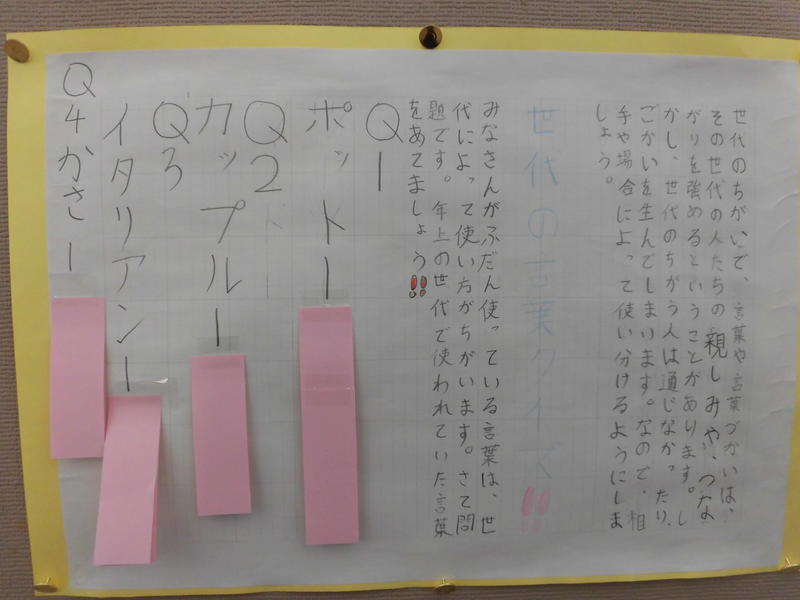 世代のちがいで、言葉や言葉づかいは、
その世代の人たちの親しみや、つな
がりを強めるということがあります。し
かし、世代のちがう人は通じなかったり、
ごかいを生んでしまいます。なので、相
手や場合によって使い分けるようにしま
しょう。
世代の言葉クイズ!!
みなさんがふだん使っている言葉は、世
代によって使い方がちがいます。さて問
題です。年上の世代で使われていた言葉
をあてましょう!!
Q1
ポットー
Q2
カップルー
Q3
イタリアンー
Q4かさー